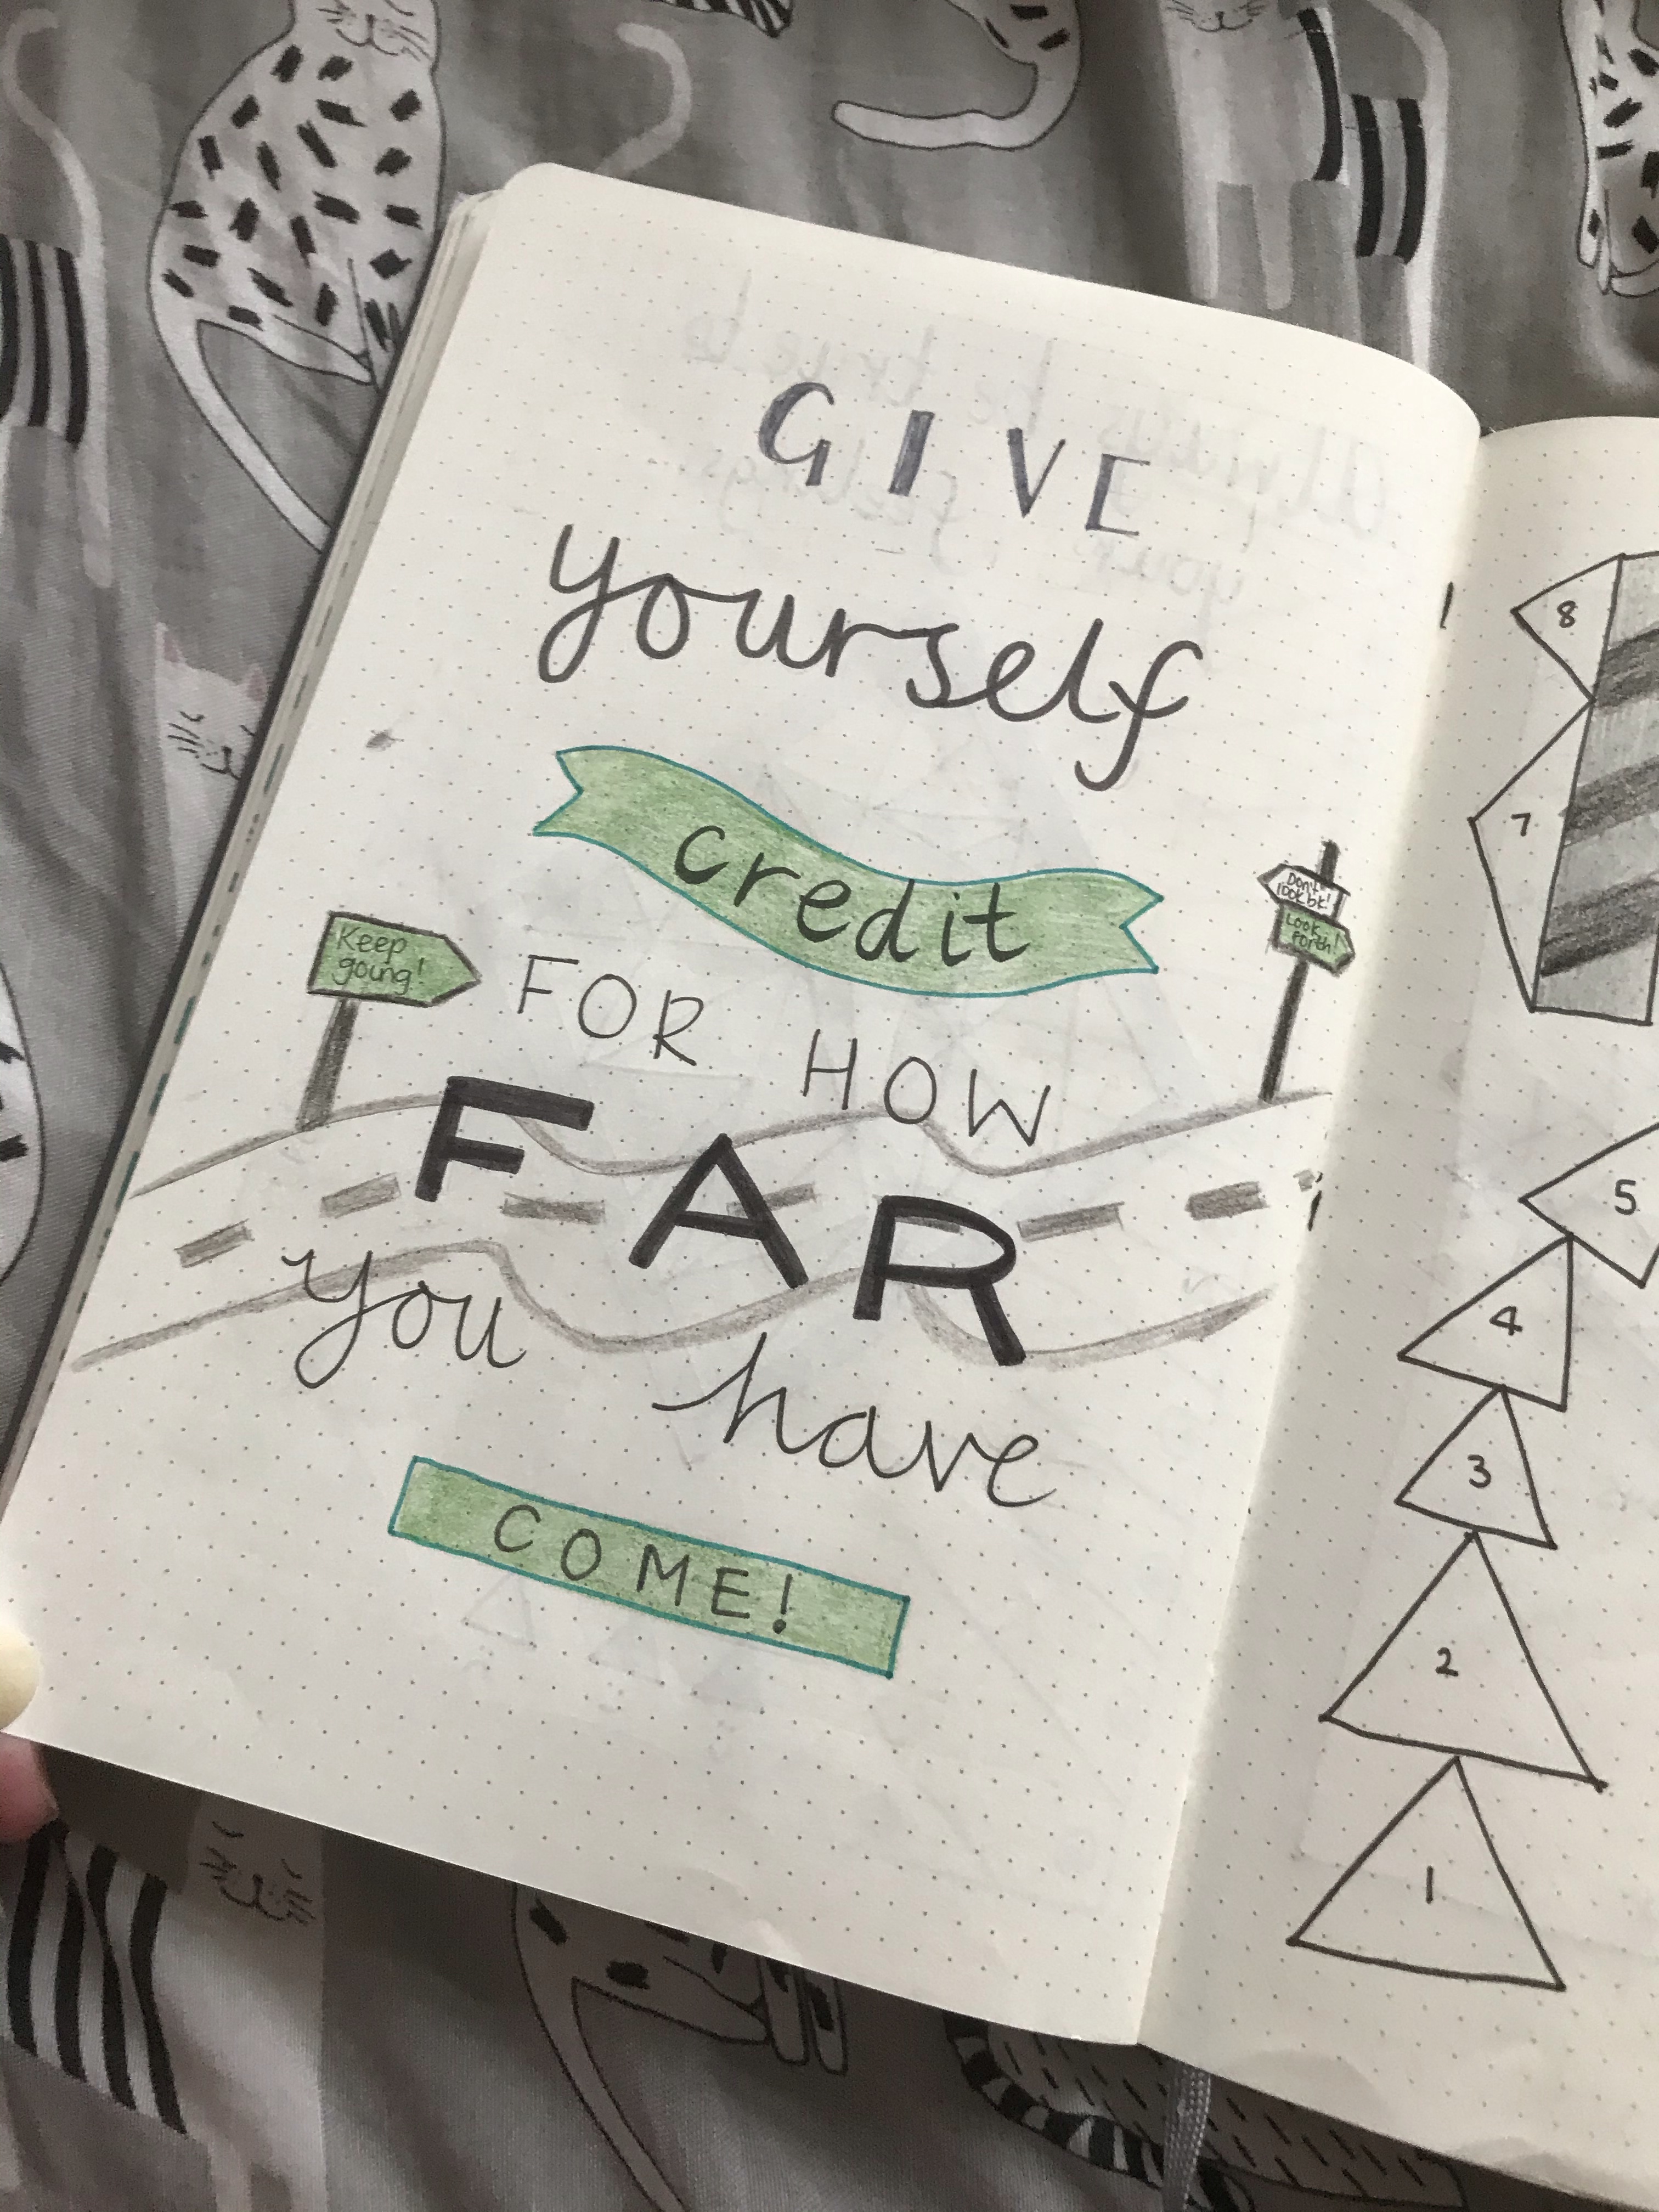 GIVE
yourself
credit
Keep
going!
Don't
look bk!
Look
Forth!
FOR HOW
FAR
you have
COME!
8
7
5
4
3
2
1